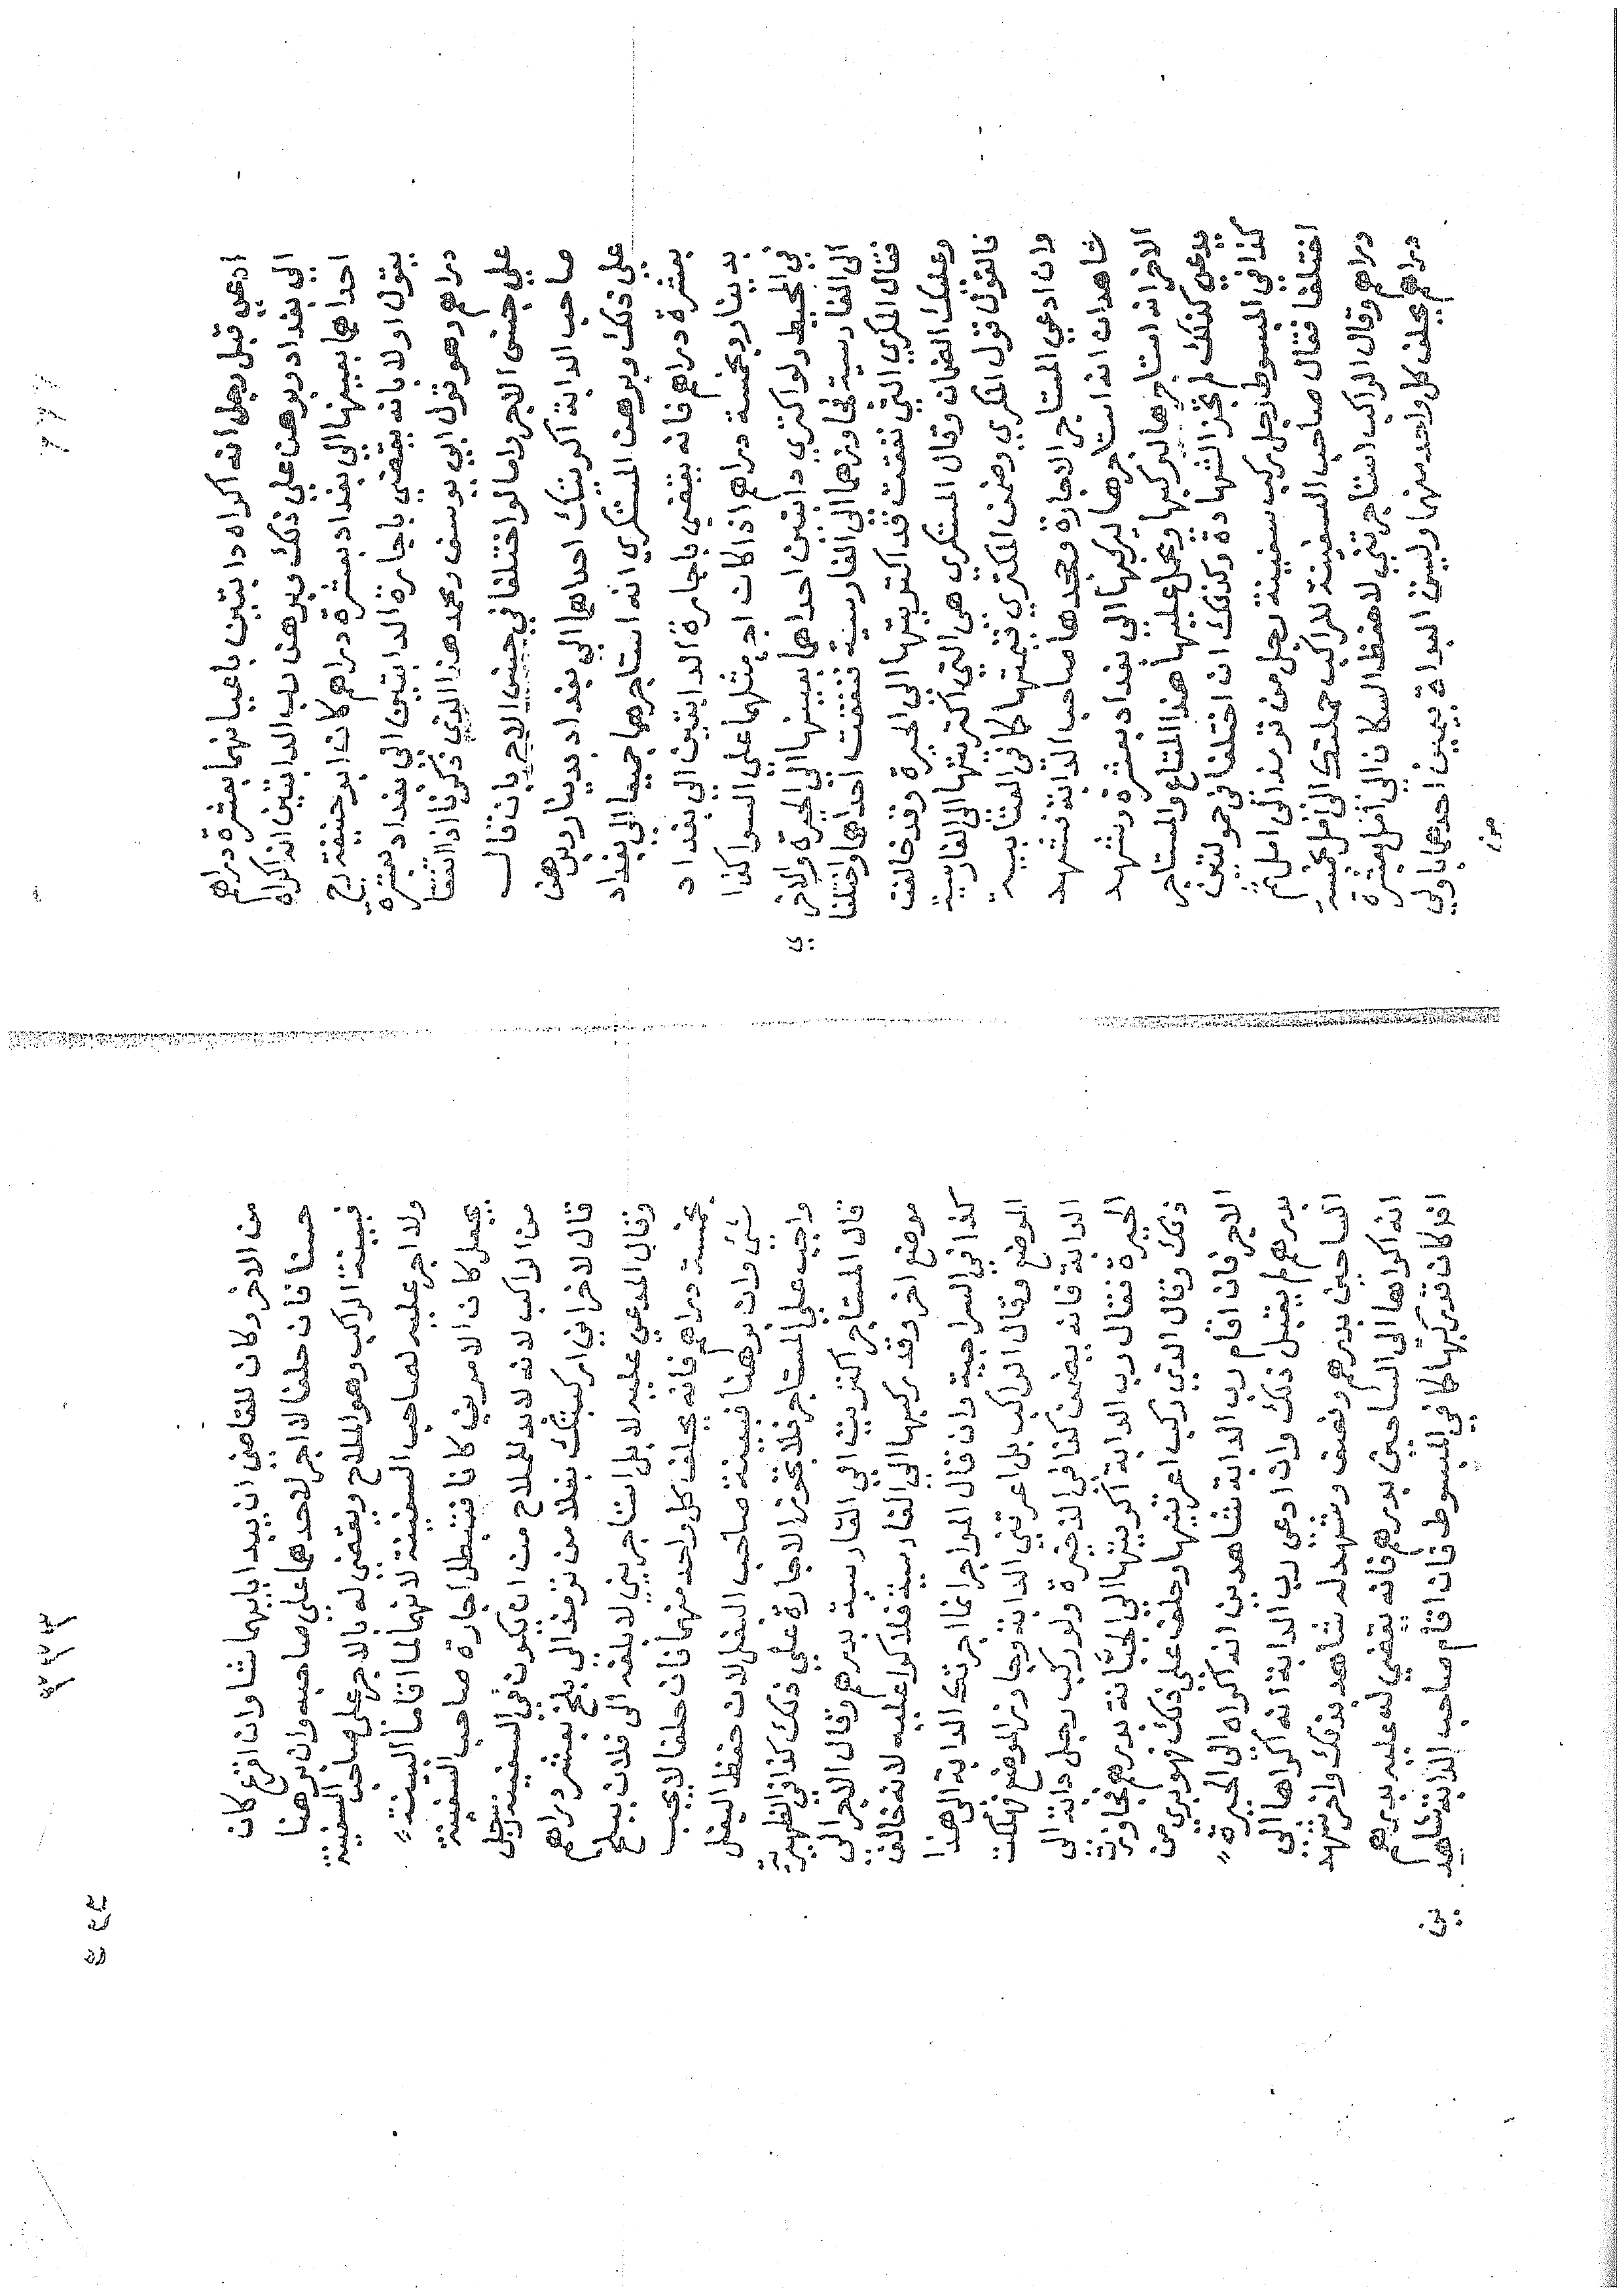 ٢٢٢
ادعي قبل رجل انه اكراه دابتين باعيانهما بعشرة دراهم
الي بغداد وبرهن علي ذلك وبرهن رب الدابتين انه اكراه
احداهما بعينها الي بغداد بعشرة دراهم كان ابو حنيفة رح
يقول اولا بانه يقضي باجارة الدابتين الي بغداد بعشرة
دراهم وهو قول ابي يوسف ومحمد هذا الذي ذكرنا اذا اتفقا
علي جنس الاجر واما لو اختلفا في جنس الاجر بان قال
صاحب الدابة اكريتك احداهما الي بغداد بدينار وبرهن
علي ذلك وبرهن المستكري انه استاجرهما جميعا الي بغداد
بعشرة دراهم فانه يقضي باجارة الدابتين الي بغداد
بدينار وبخمسة دراهم اذا كان اجر مثلهما علي السوا كذا
في المحيط ولو اكتري دابتين احداهما بعينها الي الحيرة والاخري
الي القادسية فجاوزهما الي القادسية فنفقت احداهما واختلفا
فقال المكري التي نفقت قد اكتريتها الي الحيرة وقد خالفت
وعليك الضمان وقال المستكري هي التي اكتريتها الي القادسية
فالقول قول المكري وضمن المكتري قيمتها كما في الغياثية
وان ادعي المستاجر الاجارة وجحدها صاحب الدابة فشهد
شاهدان انه استاجرها ليركبها الي بغداد بعشرة وشهد
الاخر انه استاجرها ليركبها ويحمل عليها هذا المتاع والمستاجر
يدعي كذلك لم تجز الشهادة وكذلك ان اختلفا في حمولتين
كذا في المبسوط رجل ركب سفينة رجل من ترمذ الي امل ثم
اختلفا فقال صاحب السفينة للراكب حملتك الي امل بخمسة
دراهم وقال الراكب استاجرتني لاحفظ السكان الي امل بعشرة
دراهم يحلف كل واحد منهما وليس البداة بيمين احدهما باولي
من
من الاخر وكان للقاضي ان يبدا بايهما شا وان اقرع كان
حسنا فان حلفا لا اجر لاحدهما علي صاحبه وان برهنا
فبينة الراكب وهو الملاح ويقضي له بالاجر علي صاحب السفينة
ولا اجر عليه لصاحب السفينة لانهما لما اقاما البينة
يجعل كان الامرين كانا فتبطل اجارة صاحب السفينة
من الراكب لانه لابد للملاح من ان يكون في السفينة رجل
قال لاخر اني اركبتك بغلا من ترمذ الي بلخ بعشر دراهم
وقال المدعي عليه لا بل استاجرتني لابلغه الي فلان ببلخ
بخمسة دراهم فانه يحلف كل واحد منهما فان حلفا لا يجب
شي وان برهنا فبينة صاحب البغل لان حفظ البغل
واجب علي المستاجر فلا تجوز الاجارة علي ذلك كذا في الظهيرية
قال المستاجر اكتريت الي القادسية بدرهم وقال الاجر الي
موضع اخر وقد ركبها الي القادسية فلا كرا عليه لانه خالف
كذا في السراجية وان قال المواجر انما اجرتك الدابة الي هذا
الموضع وقال الراكب بل اعرتني الدابة وجاوز الموضع فهلكت
الدابة فانه يضمن كذا في الذخيرة ولو ركب رجل دابة الي
الحيرة فقال رب الدابة اكريتها الي الجبانة بدرهم فجاوزت
ذلك وقال الذي ركب اعرتنيها وحلف علي ذلك فهو بري من
الاجر فان اقام رب الدابة شاهدين انه اكراه الي الحيرة
بدرهم لم يقبل ذلك وان ادعي رب الدابة انه اكراها الي
السالحين بدرهم ونصف وشهد له شاهد بذلك واخر شهد
انه اكراها الي السالحين بدرهم فانه يقضي له عليه بدرهم
اذا كان قد ركبها كما في المبسوط فان اقام صاحب الدابة شاهد